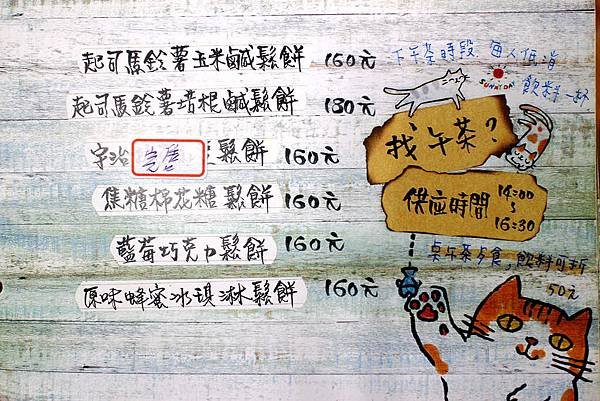 起司馬鈴薯玉米鹹鬆餅 160元
起司馬鈴薯培根鹹鬆餅 180元
宇治 完售 鬆餅 160元
焦糖棉花糖鬆餅 160元
藍莓巧克力鬆餅 160元
原味蜂蜜冰琪淋鬆餅 160元
下午茶時段 每人低消
飲料一杯
SUNNY DAY
找午茶?
供应時間 14:00
~
16:30
點午茶夕食 飲料可折
50元